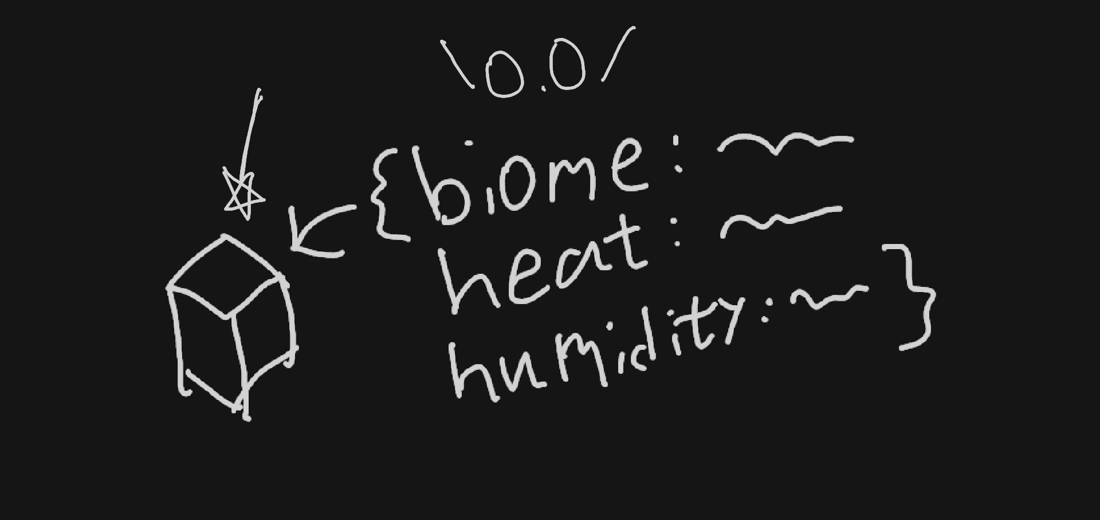 \0.0/
{biome: ~~
heat: ~~
humidity: ~~ }